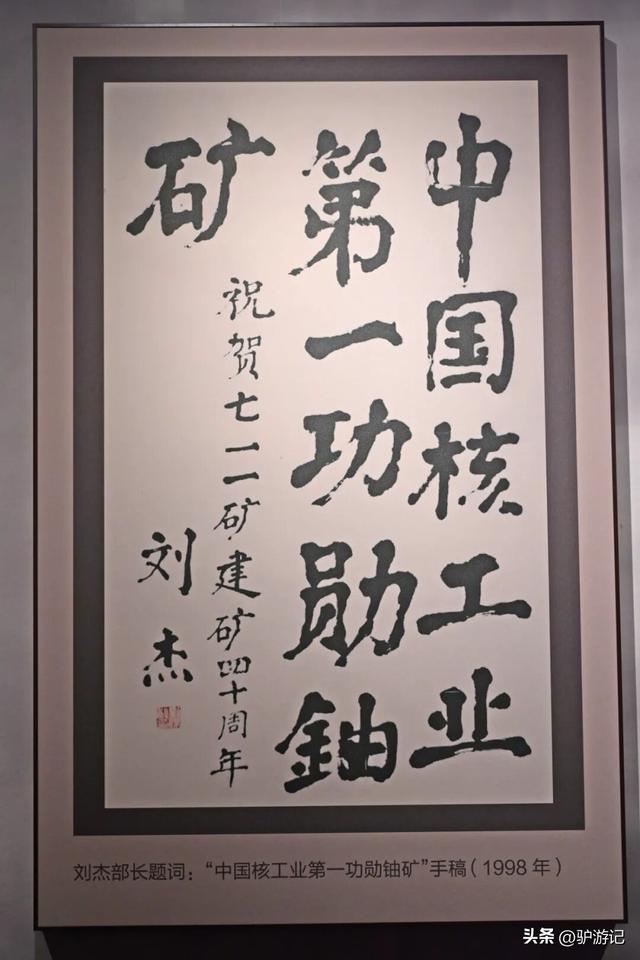 中国核工业
第一功勋铀
矿
祝贺七一一矿建矿四十周年
刘杰
刘杰部长题词：“中国核工业第一功勋铀矿”手稿（1998年）
头条@驴游记